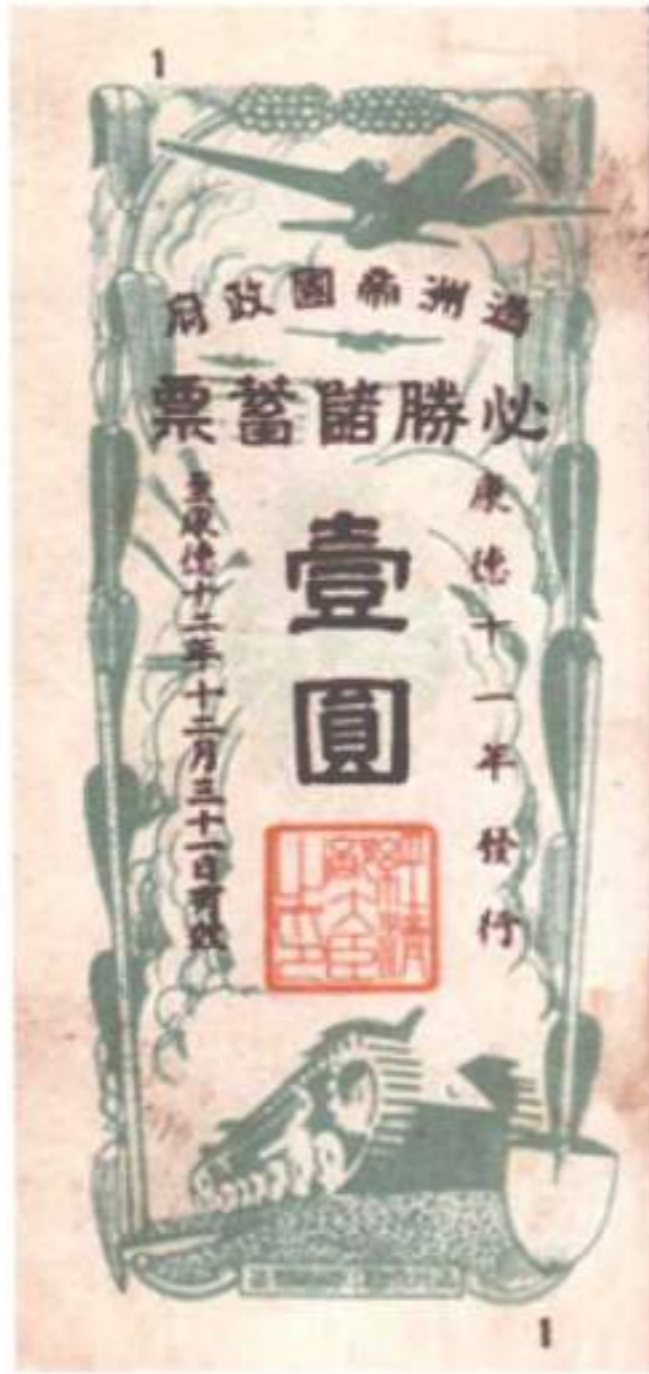 1
滿洲帝國政府
必勝儲蓄票
康德十一年發行
壹圓
至康德十二年十二月三十一日有效
1